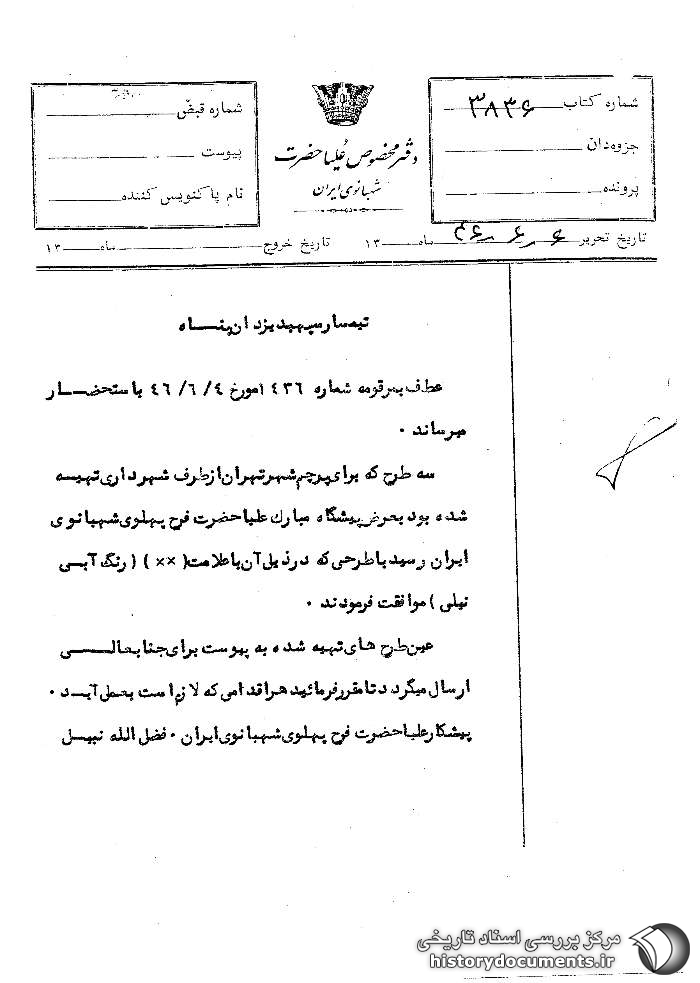 شماره کتاب ۳۸۳۶
جزوه‌دان
پرونده
دفتر مخصوص علیاحضرت
شهبانوی ایران
شماره قبض
پیوست
نام پاکنویس کننده
تاریخ تحریر ۶ ماه ۶ ۱۳۴۶
تاریخ خروج ماه ۱۳
تیمسار سپهبد یزدان پناه
عطف بمرقومه شماره ۱۴۳۶ مورخ ۴/ ۶/ ۴۶ باستحضار
میرساند ۰
سه طرح که برای پرچم شهر تهران از طرف شهرداری تهیه
شده بود بعرض پیشگاه مبارك علیاحضرت فرح پهلوی شهبانوی
ایران رسید با طرحی که در ذیل آن با علامت ( ×× ) ( رنگ آبی
نیلی ) موافقت فرمودند ۰
عین طرح های تهیه شده به پیوست برای جنابعالی
ارسال میگردد تا مقرر فرمائید هر اقدامی که لازم است بعمل آید ۰
پیشکار علیاحضرت فرح پهلوی شهبانوی ایران ۰ فضل الله نبیل
مرکز بررسی اسناد تاریخی
historydocuments.ir